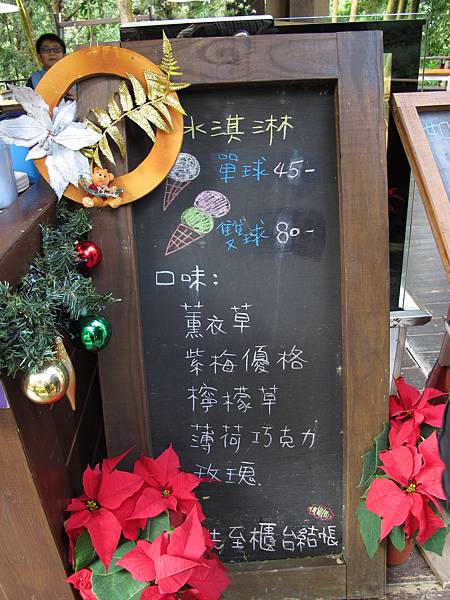 冰淇淋
單球 45-
雙球 80-
口味:
薰衣草
紫梅優格
檸檬草
薄荷巧克力
玫瑰
至櫃台結帳